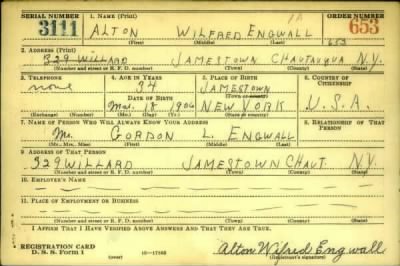 SERIAL NUMBER 1. NAME (Print) ORDER NUMBER
3111 ALTON WILFRED ENGWALL 1A 653
(First) (Middle) (Last) 653
2. ADDRESS (Print)
329 WILLARD JAMESTOWN CHAUTAUQUA N.Y.
(Number and street or R. F. D. number) (Town) (County) (State)
3. TELEPHONE 4. AGE IN YEARS 5. PLACE OF BIRTH 6. COUNTRY OF CITIZENSHIP
none 34 JAMESTOWN
DATE OF BIRTH (Town or county)
Mar. 18 1906 NEW YORK U.S.A.
(Exchange) (Number) (Mo.) (Day) (Yr.) (State or country)
7. NAME OF PERSON WHO WILL ALWAYS KNOW YOUR ADDRESS 8. RELATIONSHIP OF THAT PERSON
GORDON L. ENGWALL
(Mr., Mrs., Miss) (First) (Middle) (Last)
9. ADDRESS OF THAT PERSON
329 WILLARD JAMESTOWN CHAUT. N.Y.
(Number and street or R. F. D. number) (Town) (County) (State)
10. EMPLOYER'S NAME
11. PLACE OF EMPLOYMENT OR BUSINESS
(Number and street or R. F. D. number) (Town) (County) (State)
I AFFIRM THAT I HAVE VERIFIED ABOVE ANSWERS AND THAT THEY ARE TRUE.
REGISTRATION CARD
D. S. S. Form 1 (over) 16—17105 Alton Wilfred Engwall
(Registrant's signature)